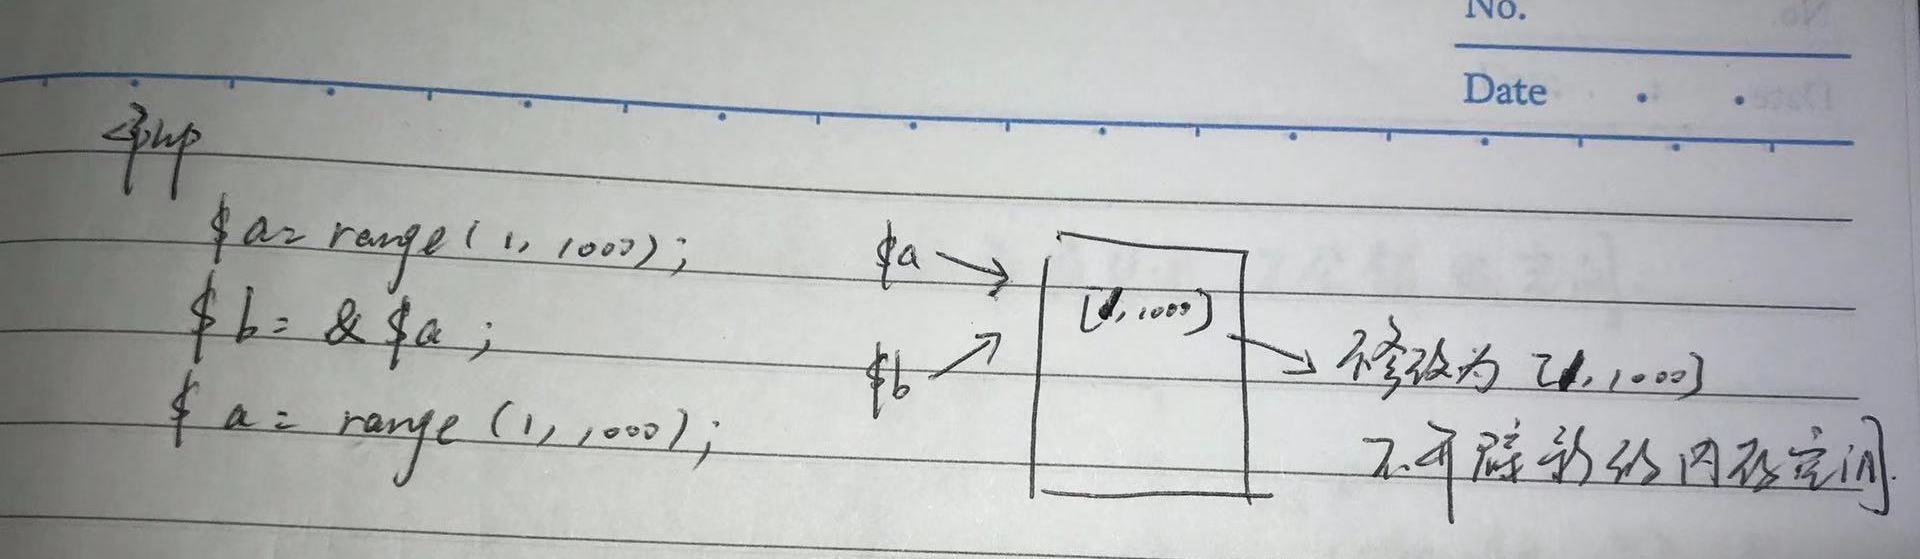 No.
Date
<?php
$a= range(1, 1000);
$b= &$a;
$a= range(1, 1000);
$a
$b
[1, 1000]
修改为 [1, 1000]
不开辟新的内存空间.